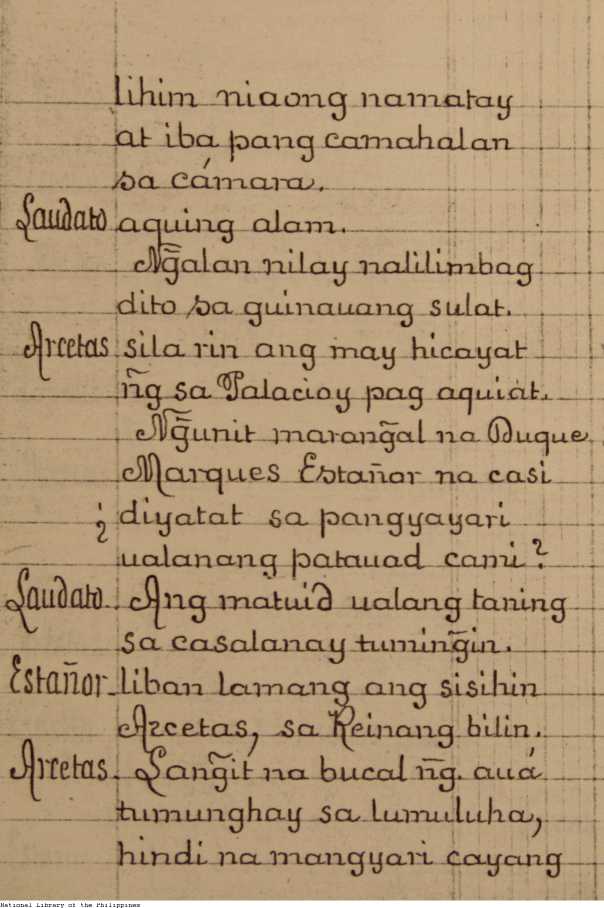 lihim niaong namatay
at iba pang camahalan
sa cámara.
Laudato aquing alam.
Ng̃alan nilay nalilimbag
dito sa guinauang sulat.
Arcetas sila rin ang may hicayat
ñg sa Palacioy pag aquiát.
Ng̃unit marang̃al na Duque
Marques Estañor na casi
¿ diyatat sa pangyayari
ualanang patauad cami?
Laudato. Ang matuid ualang taning
sa casalanay tuming̃in.
Estañor_liban lamang ang sisihin
Arcetas, sa Reinang bilin.
Arcetas. Lang̃it na bucal ñg. auá
tumunghay sa lumuluha,
hindi na mangyari cayang
National Library of the Philippines